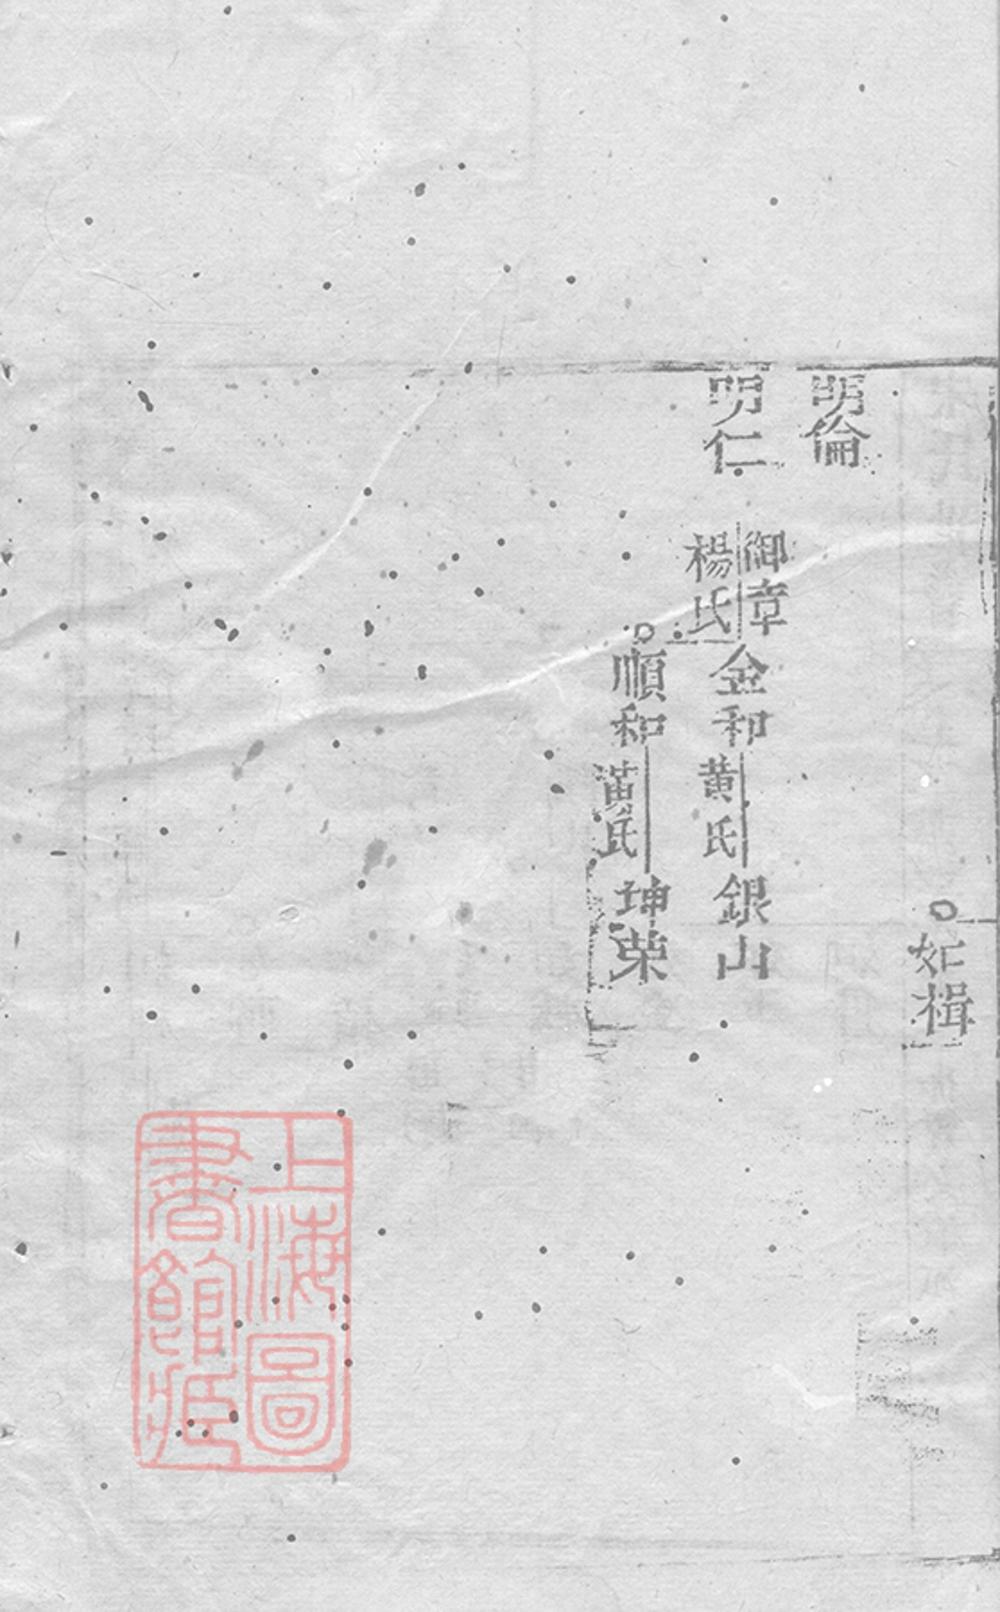 如楫
明倫
明仁
御章
楊氏
金和
黄氏
銀山
順和
黄氏
坤荣
上海圖
書館藏